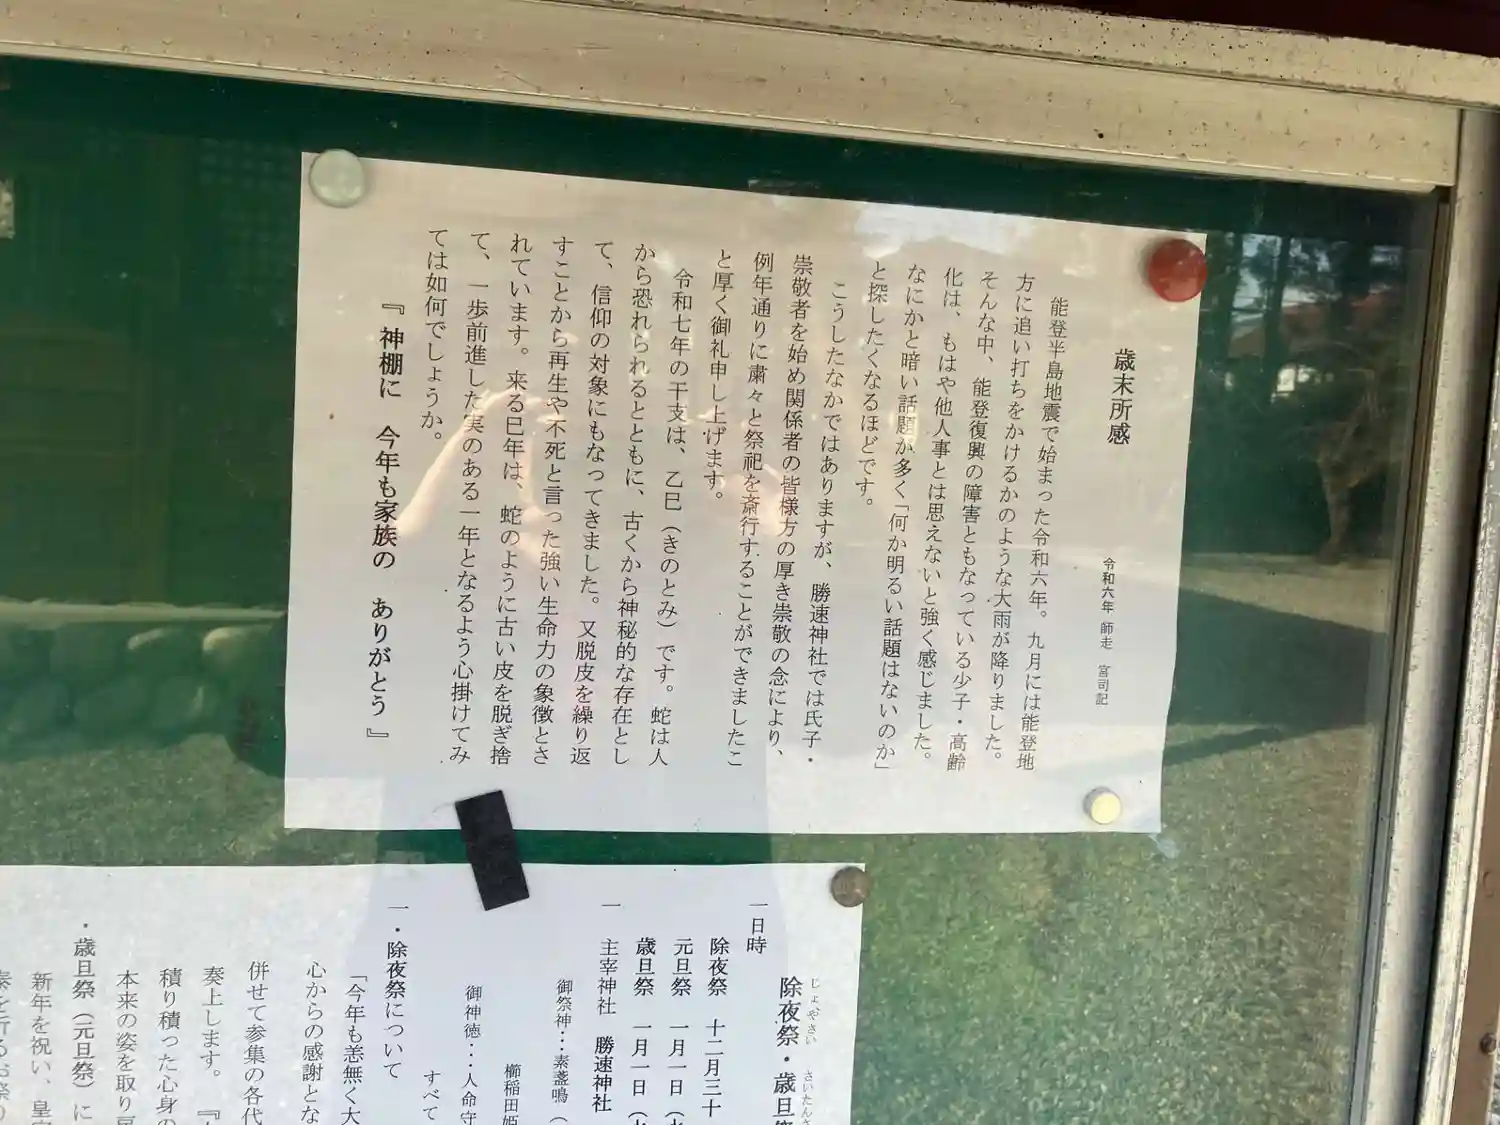 歳末所感
令和六年 師走 宮司記
能登半島地震で始まった令和六年。九月には能登地
方に追い打ちをかけるかのような大雨が降りました。
そんな中、能登復興の障害ともなっている少子・高齢
化は、もはや他人事とは思えないと強く感じました。
なにかと暗い話題が多く「何か明るい話題はないのか」
と探したくなるほどです。
こうしたなかではありますが、勝速神社では氏子・
崇敬者を始め関係者の皆様方の厚き崇敬の念により、
例年通りに粛々と祭祀を斎行することができましたこ
と厚く御礼申し上げます。
令和七年の干支は、乙巳（きのとみ）です。蛇は人
から恐れられるとともに、古くから神秘的な存在とし
て、信仰の対象にもなってきました。又脱皮を繰り返
すことから再生や不死と言った強い生命力の象徴とさ
れています。来る巳年は、蛇のように古い皮を脱ぎ捨
て、一歩前進した実のある一年となるよう心掛けてみ
ては如何でしょうか。
『神棚に 今年も家族の ありがとう』
除夜祭・歳旦
じょやさい さいたんさ
一日時
除夜祭 十二月三十
元旦祭 一月一日（
歳旦祭 一月一日（
一 主宰神社 勝速神社
御祭神･･･素盞鳴（
櫛稲田姫
御神徳･･･人命守
すべて
一・除夜祭について
「今年も恙無く大
心からの感謝とな
併せて参集の各代
奏上します。『
積り積った心身の
本来の姿を取り戻
・歳旦祭（元旦祭）に
新年を祝い、皇室